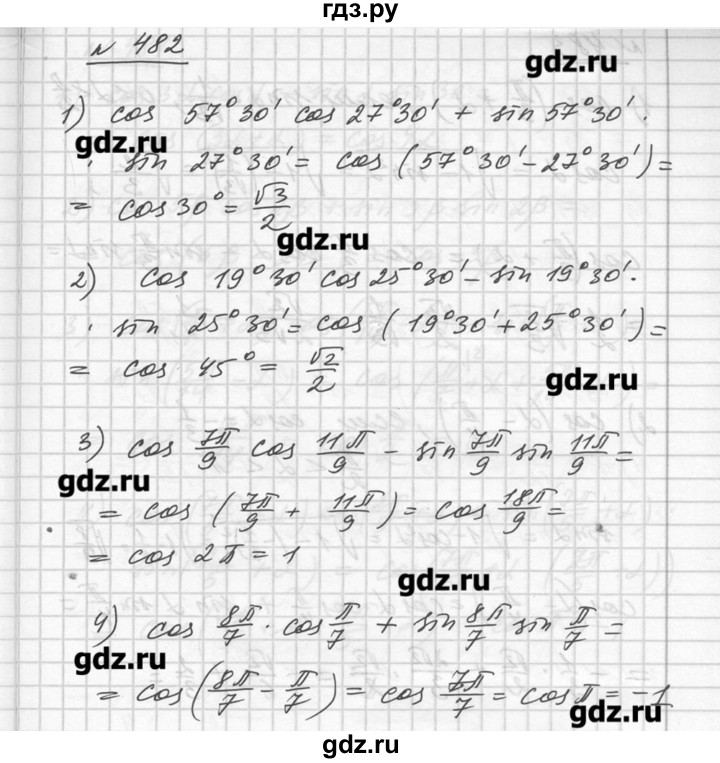 гдз.ру
№ 482
gdz.ru
1) cos 57°30' cos 27°30' + sin 57°30' ·
gdz.ru
· sin 27°30' = cos (57°30' - 27°30') =
= cos 30° = √3/2
gdz.ru
2) cos 19°30' cos 25°30' - sin 19°30' ·
· sin 25°30' = cos (19°30' + 25°30') =
= cos 45° = √2/2
gdz.ru
3) cos 7π/9 cos 11π/9 - sin 7π/9 sin 11π/9 =
gdz.ru
= cos (7π/9 + 11π/9) = cos 18π/9 =
= cos 2π = 1
gdz.ru
4) cos 8π/7 · cos π/7 + sin 8π/7 sin π/7 =
gdz.ru
= cos (8π/7 - π/7) = cos 7π/7 = cos π = -1
gdz.ru
gdz.ru